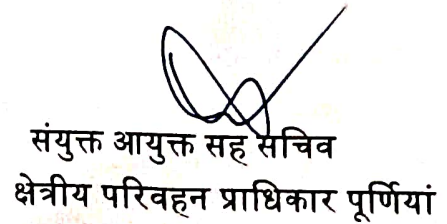 संयुक्त आयुक्त सह सचिव
क्षेत्रीय परिवहन प्राधिकार पूर्णियां